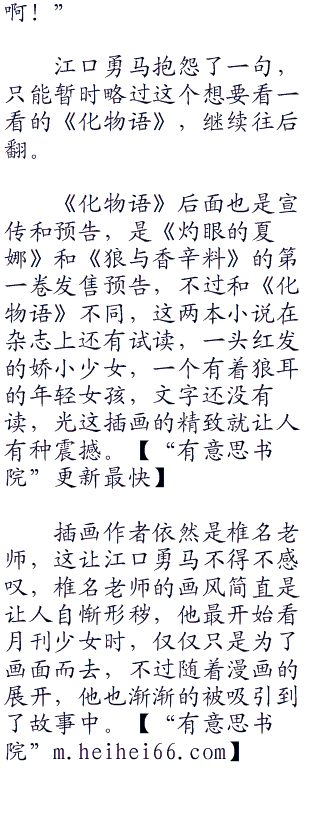 啊！”
江口勇马抱怨了一句，
只能暂时略过这个想要看一
看的《化物语》，继续往后
翻。
《化物语》后面也是宣
传和预告，是《灼眼的夏
娜》和《狼与香辛料》的第
一卷发售预告，不过和《化
物语》不同，这两本小说在
杂志上还有试读，一头红发
的娇小少女，一个有着狼耳
的年轻女孩，文字还没有
读，光这插画的精致就让人
有种震撼。【“有意思书
院”更新最快】
插画作者依然是椎名老
师，这让江口勇马不得不感
叹，椎名老师的画风简直是
让人自惭形秽，他最开始看
月刊少女时，仅仅只是为了
画面而去，不过随着漫画的
展开，他也渐渐的被吸引到
了故事中。【“有意思书
院”m.heihei66.com】